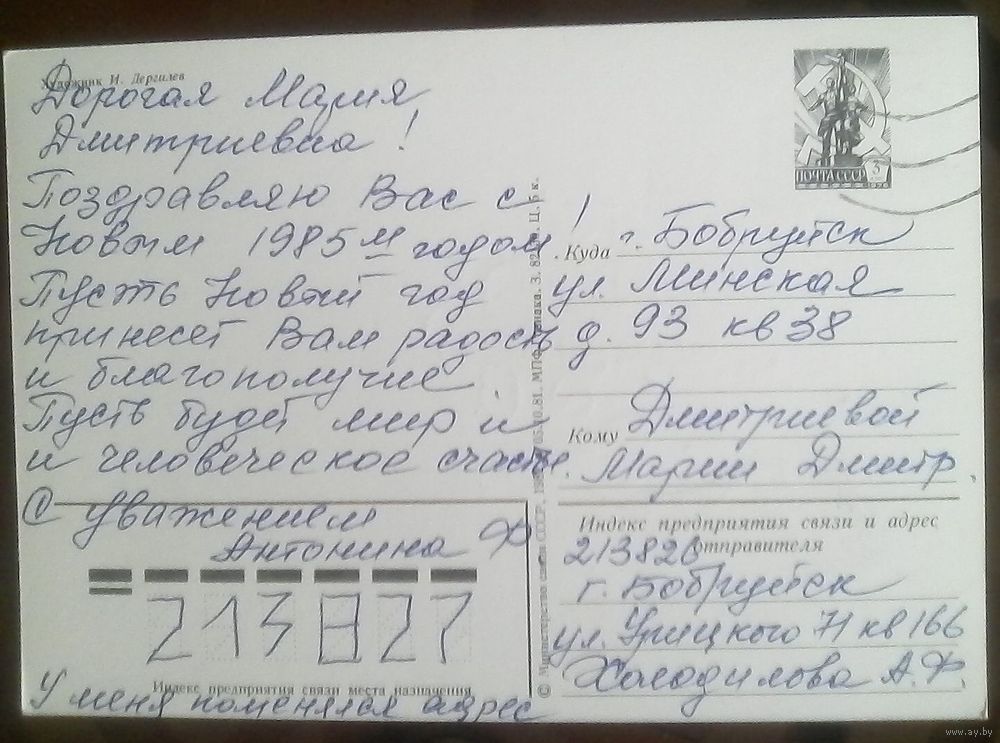 Художник И. Дергилев
Дорогая Мария
Дмитриевна!
Поздравляю Вас с
Новым 1985м годом!
Пусть Новый год
принесет Вам радость
и благополучие.
Пусть будет мир и
и человеческое счастье.
С уважением
Антонина Ф
213827
Индекс предприятия связи места назначения
У меня поменялся адрес
ПОЧТА СССР
Куда г. Бобруйск
ул. Минская
д. 93 кв 38
Кому Дмитриевой
Марии Дмитр.
Индекс предприятия связи и адрес
отправителя
213826
г. Бобруйск
ул. Урицкого 71 кв 166
Холодилова А.Ф.
www.ay.by